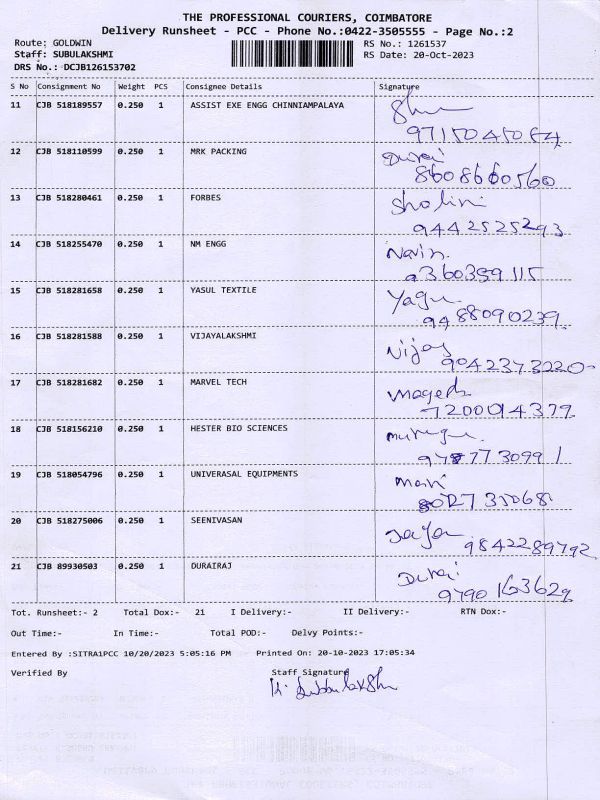 THE PROFESSIONAL COURIERS, COIMBATORE
Delivery Runsheet - PCC - Phone No.:0422-3505555 - Page No.:2
Route: GOLDWIN RS No.: 1261537
Staff: SUBULAKSHMI RS Date: 20-Oct-2023
DRS No.: DCJB126153702
S No Consignment No Weight PCS Consignee Details Signature
11 CJB 518189557 0.250 1 ASSIST EXE ENGG CHINNIAMPALAYA
9715045064
12 CJB 518110599 0.250 1 MRK PACKING Durai
8608660560
13 CJB 518280461 0.250 1 FORBES Shalini
9442525293
14 CJB 518255470 0.250 1 NM ENGG Navin.
9360399115
15 CJB 518281658 0.250 1 YASUL TEXTILE
9488090239.
16 CJB 518281588 0.250 1 VIJAYALAKSHMI Vijay
9042373220
17 CJB 518281682 0.250 1 MARVEL TECH
7200014377
18 CJB 518156210 0.250 1 HESTER BIO SCIENCES
19 CJB 518054796 0.250 1 UNIVERASAL EQUIPMENTS Mani
20 CJB 518275006 0.250 1 SEENIVASAN Jaya
9842289792
21 CJB 89930503 0.250 1 DURAIRAJ Durai
9790163629
Tot. Runsheet:- 2 Total Dox:- 21 I Delivery:- II Delivery:- RTN Dox:-
Out Time:- In Time:- Total POD:- Delvy Points:-
Entered By :SITRA1PCC 10/20/2023 5:05:16 PM Printed On: 20-10-2023 17:05:34
Verified By Staff Signature
K. Subbulakshmi